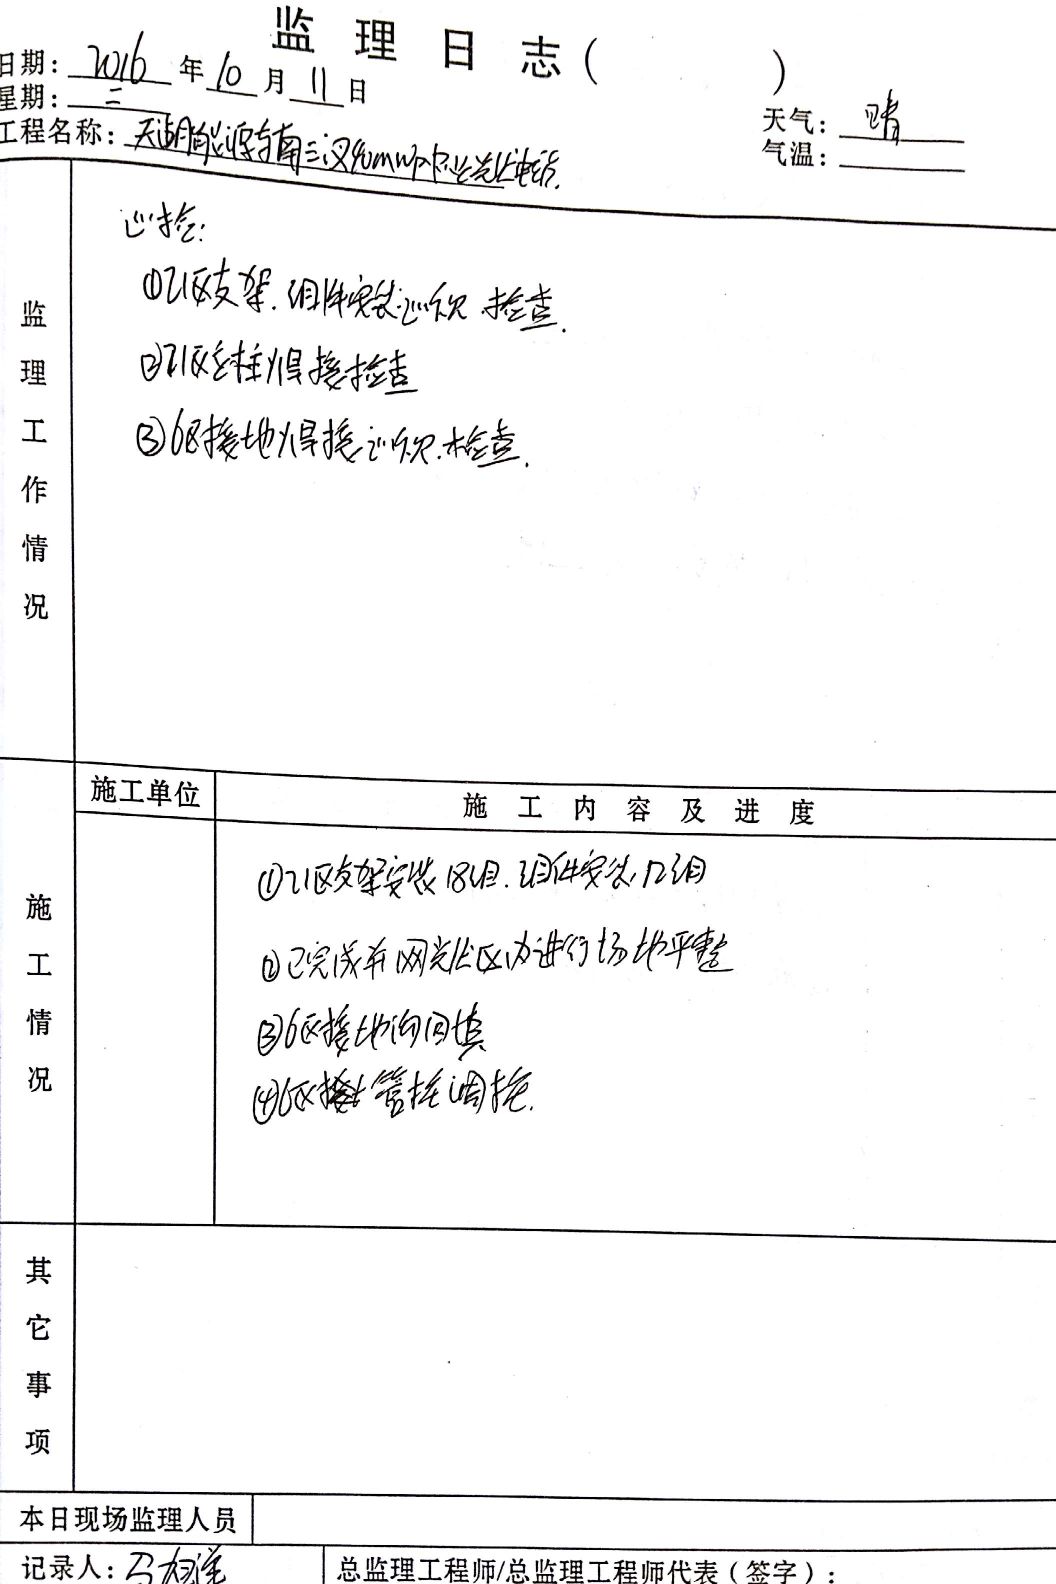 监理日志( )
日期: 2016 年 10 月 11 日
星期: 二
天气: 晴
气温:
工程名称: 南三汉40MWp
监理工作情况
巡检:
①21区支架、组件安装巡视、检查.
②21区立柱焊接检查
③6区接地焊接巡视、检查.
施工单位
施工内容及进度
施工情况
①21区支架安装18组、组件安装12组
②已完成并网光伏区内进行场地平整
③6区接地沟回填
④6区管桩调
其它事项
本日现场监理人员
记录人: 马
总监理工程师/总监理工程师代表(签字):